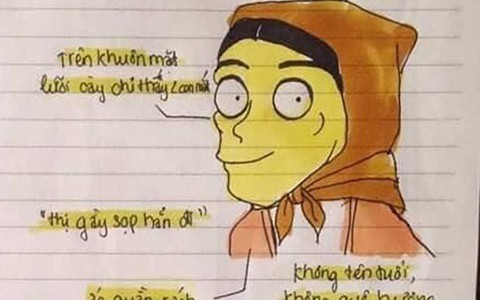 Trên khuôn mặt
lưỡi cày chỉ thấy 2 con mắt
"thị gầy sọp hẳn đi"
áo quần rách
không tên tuổi,
không quê hương